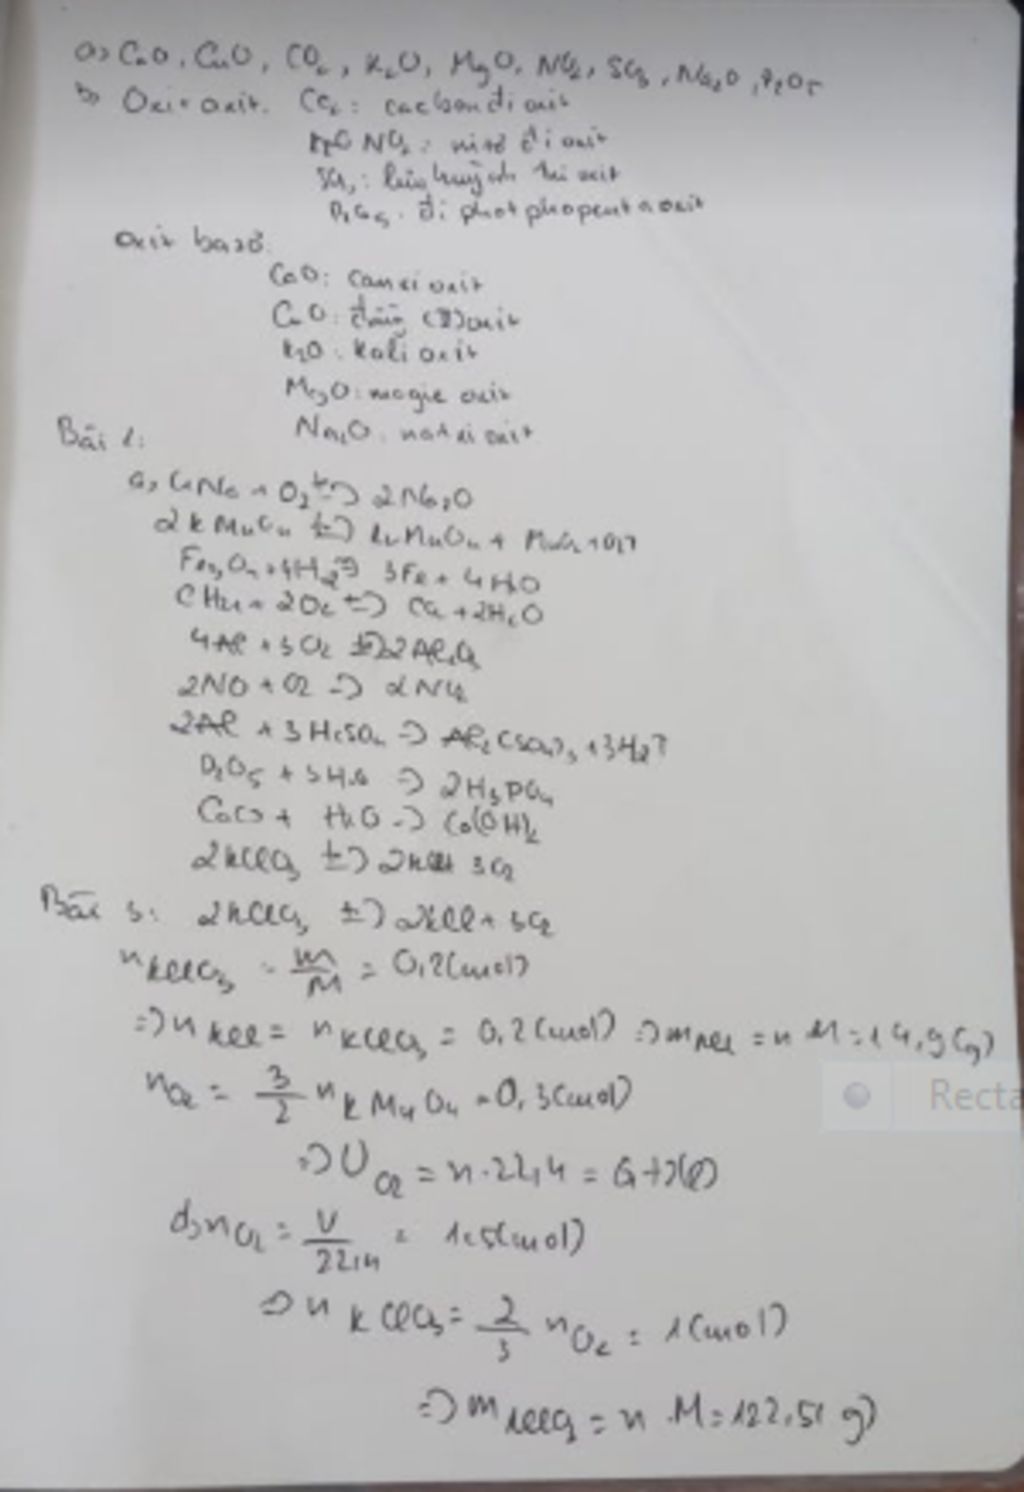 a) CaO, CuO, CO2, K2O, MgO, NO2, SO3, Na2O, P2O5
b) Oxit axit. CO2: cacbon đi oxit
NO2: nitơ đi oxit
SO3: lưu huỳnh tri oxit
P2O5: đi photpho penta oxit
oxit bazơ:
CaO: canxi oxit
CuO: đồng (II) oxit
K2O: kali oxit
MgO: magie oxit
Na2O: natri oxit
Bài 2:
a, 4Na + O2 => 2Na2O
2KMnO4 => K2MnO4 + MnO2 + O2↑
Fe3O4 + 4H2 => 3Fe + 4H2O
CH4 + 2O2 => CO2 + 2H2O
4Al + 3O2 => 2Al2O3
2NO + O2 => 2NO2
2Al + 3H2SO4 => Al2(SO4)3 + 3H2↑
P2O5 + 3H2O => 2H3PO4
CaO + H2O => Ca(OH)2
2KClO3 => 2KCl + 3O2
Bài 3: 2KClO3 => 2KCl + 3O2
nKClO3 = m/M = 0,2(mol)
=> nKCl = nKClO3 = 0,2(mol) => mKCl = n.M = 14,9(g)
nO2 = 3/2 nKMnO4 = 0,3(mol)
=> VO2 = n.22,4 = 6,72(l)
nO2 = V/22,4 = 1,5(mol)
=> nKClO3 = 2/3 nO2 = 1(mol)
=> mKClO3 = n.M = 122,5(g)
Recta